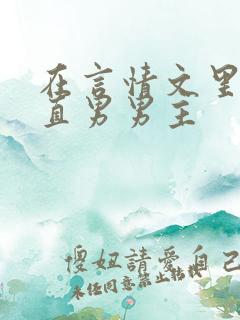 在言情文里
直男男主
傻妞請愛自己
未任同意禁止轉載